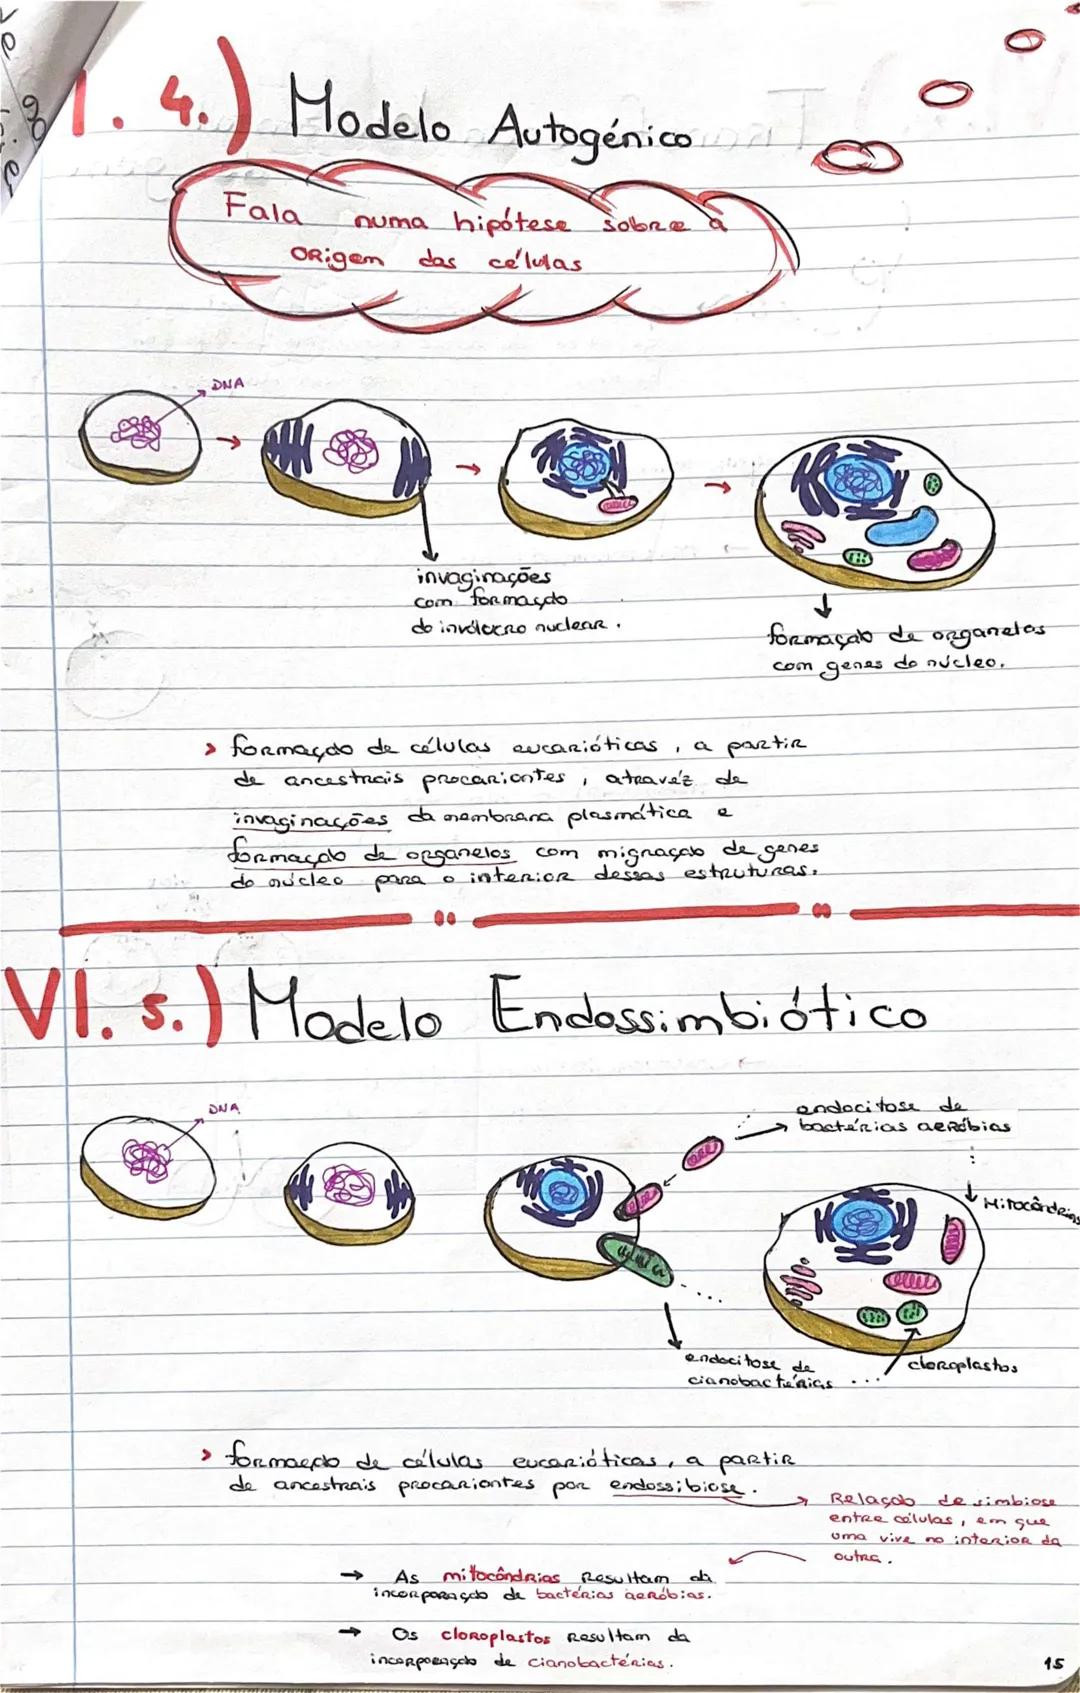 I. 4.) Modelo Autogénico
Fala numa hipótese sobre a
origem das células
DNA
invaginações
com formação
do invólucro nuclear.
formação de organelos
com genes do núcleo.
> formação de células eucarióticas, a partir
de ancestrais procariontes, atravéz de
invaginações da membrana plasmática e
formação de organelos com migração de genes
do núcleo para o interior dessas estruturas.
VI. 5.) Modelo Endossimbiótico
DNA
endocitose de
bactérias aeróbias
Mitocôndrias
endocitose de
cianobactérias ...
cloroplastos
> formação de células eucarióticas, a partir
de ancestrais procariontes por endossibiose.
Relação de simbiose
entre células, em que
uma vive no interior da
outra.
→ As mitocôndrias resultam da
incorporação de bactérias aeróbias.
→ Os cloroplastos resultam da
incorporação de cianobactérias.
15